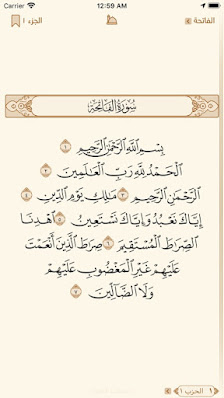 Carrier 12:59 AM
الجزء ١ الفاتحة
سُورَةُ الفَاتِحَةِ
بِسْمِ ٱللَّهِ ٱلرَّحْمَٰنِ ٱلرَّحِيمِ ١
ٱلْحَمْدُ لِلَّهِ رَبِّ ٱلْعَٰلَمِينَ ٢
ٱلرَّحْمَٰنِ ٱلرَّحِيمِ ٣ مَٰلِكِ يَوْمِ ٱلدِّينِ ٤
إِيَّاكَ نَعْبُدُ وَإِيَّاكَ نَسْتَعِينُ ٥ ٱهْدِنَا
ٱلصِّرَٰطَ ٱلْمُسْتَقِيمَ ٦ صِرَٰطَ ٱلَّذِينَ أَنْعَمْتَ
عَلَيْهِمْ غَيْرِ ٱلْمَغْضُوبِ عَلَيْهِمْ
وَلَا ٱلضَّآلِّينَ ٧
١ الحزب ١